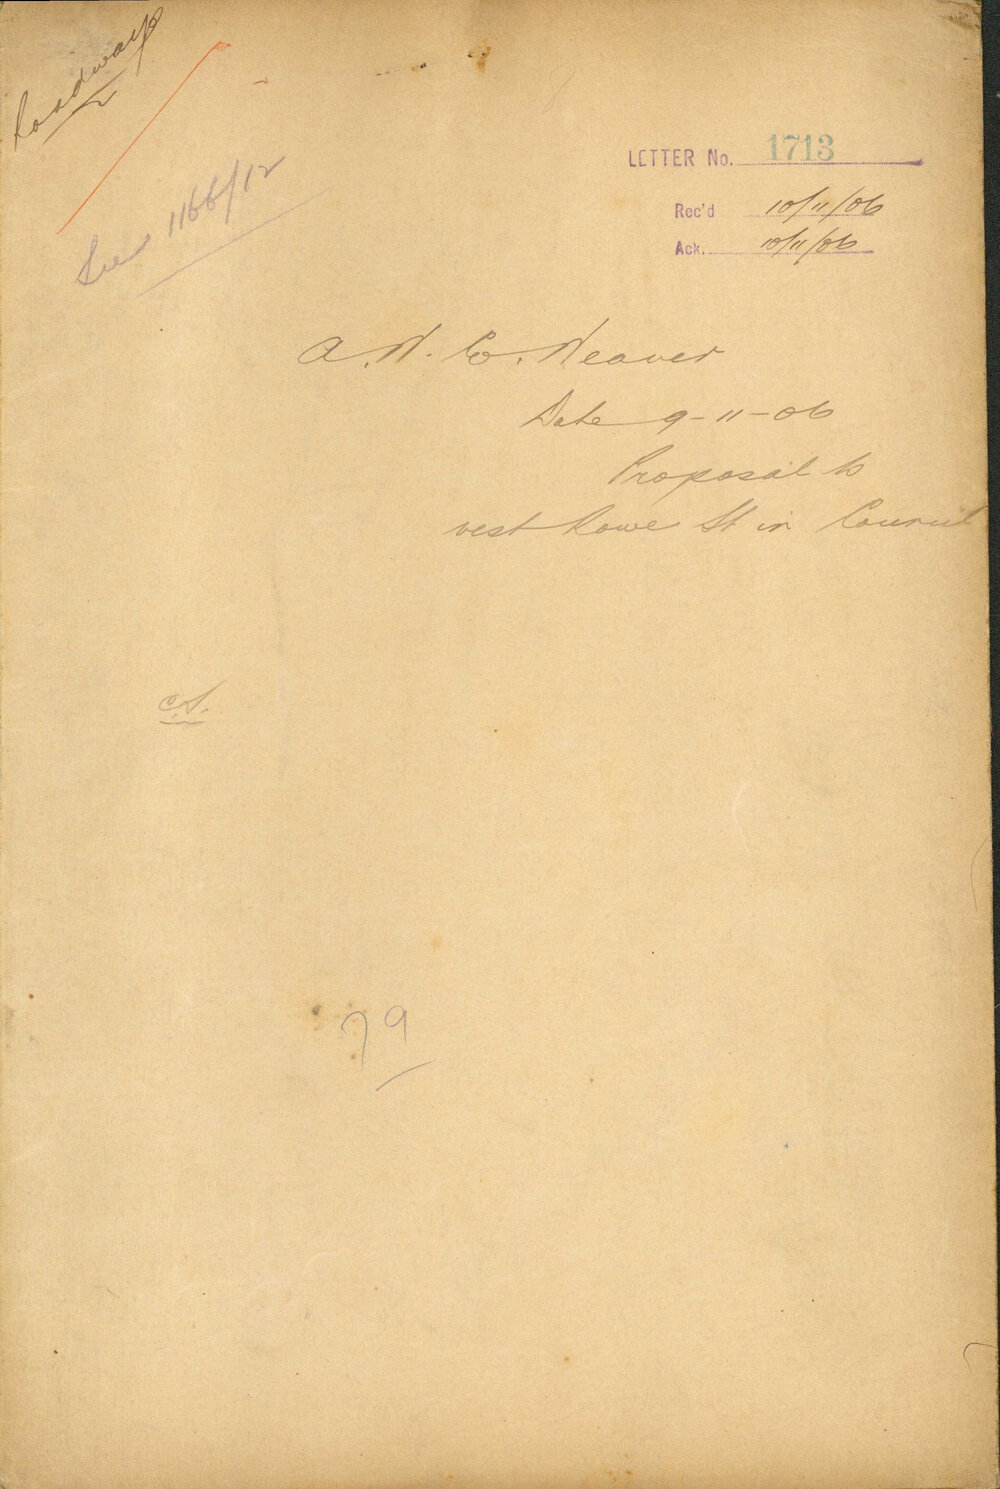 Roadways
See 1166/12
LETTER No. 1713
Rec'd 10/11/06
Ack. 10/11/06
A. W. G. Weaver
Date 9-11-06
Proposal to
vest Rowe St in Council
C.S.
79